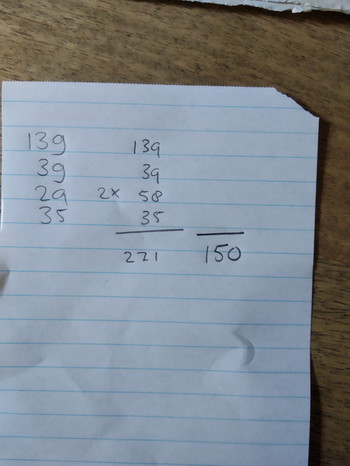 139 139
39 39
29 2x 58
35 35
271 150